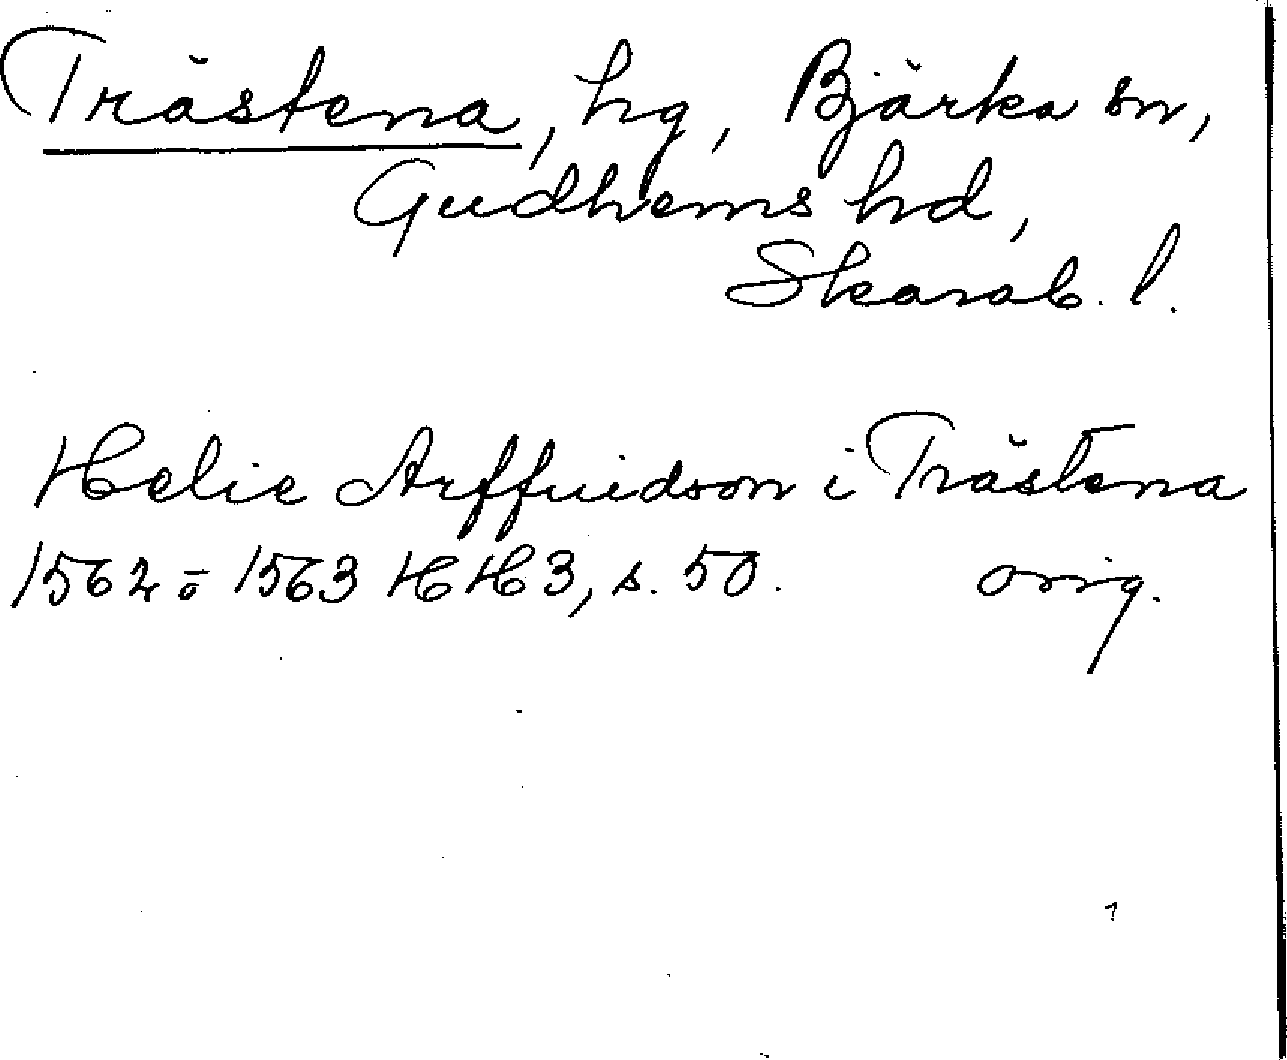 Trästena, hg, Bjärka sn,
Gudhems hd,
Skarab. l.
Helie Arffuidson i Trästena
1562 - 1563 HH3, s. 50. orig.